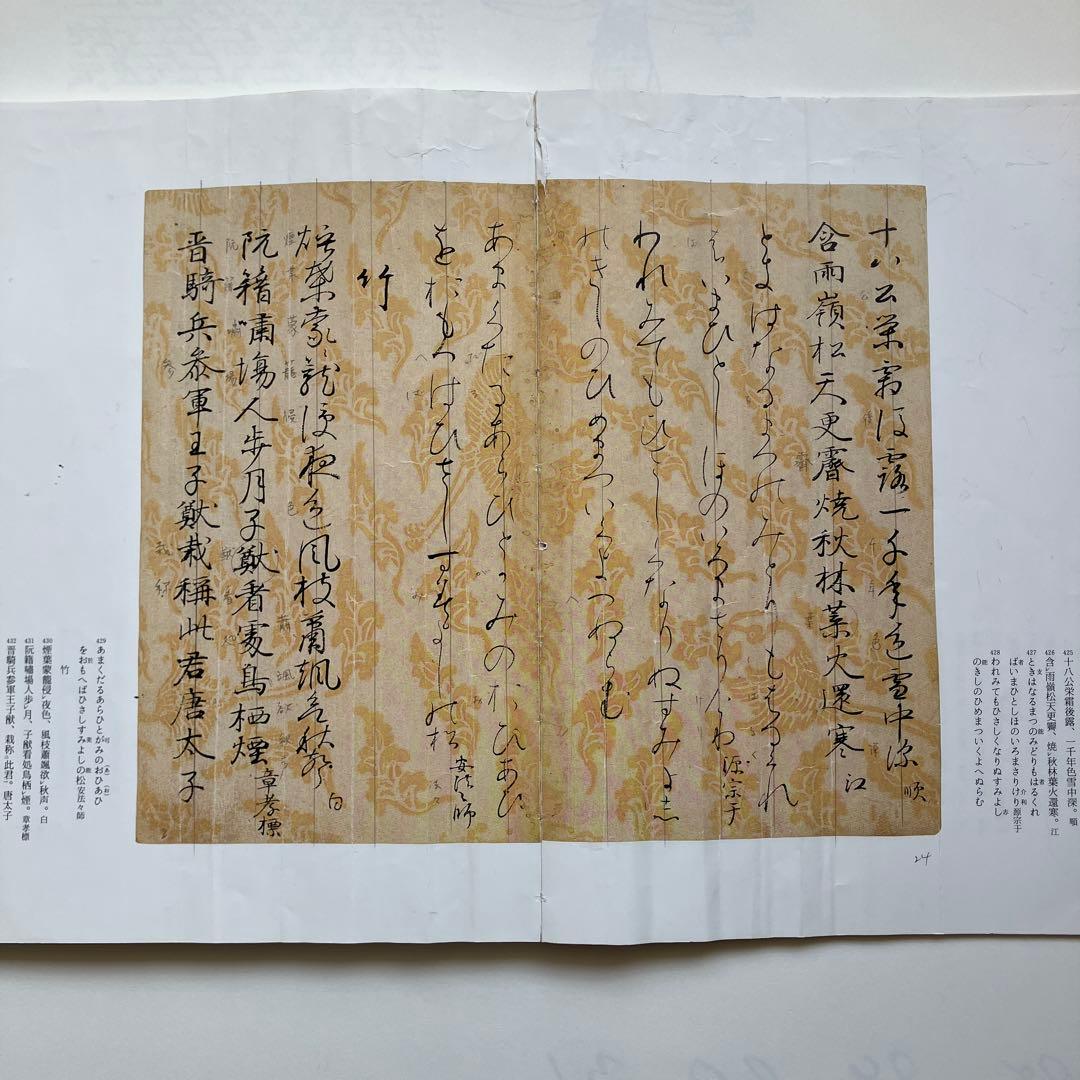 十八公栄霜後露一千年色雪中深 順
含雨嶺松天更霽焼秋林葉火還寒 江
ときはなるまつのみとりもはるくれ
はいまひとしほのいろまさりけりね 源宗于
われみてもひさしくなりぬすみよし
のきしのひめまついくよへぬらむ
あまくたるあらひとかみのおひあひ
をおもへはひさしすみよしの松 安法々師
竹
煙葉蒙籠侵夜色風枝蕭颯欲秋声 白
阮籍嘯場人歩月子猷看処鳥栖煙 章孝標
晋騎兵参軍王子猷栽称此君唐太子
24
425 十八公栄霜後露、一千年色雪中深。順
426 含雨嶺松天更霽、焼秋林葉火還寒。江
427 ときはなるまつのみどりもはるくれ
ばいまひとしほのいろまさりけり 源宗于
428 われみてもひさしくなりぬすみよし
のきしのひめまついくよへぬらむ
429 あまくだるあらひとがみのおひあひ
をおもへばひさしすみよしの松 安法々師
竹
430 煙葉蒙籠侵夜色、風枝蕭颯欲秋声。白
431 阮籍嘯場人歩月、子猷看処鳥栖煙。章孝標
432 晋騎兵参軍王子猷、栽称此君。唐太子